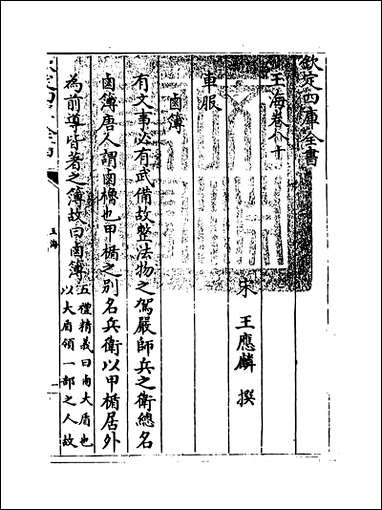 欽定四庫全書
玉海卷八十
宋 王應麟 撰
車服
鹵簿
有文事必有武備故整法物之駕嚴師兵之衛總名
鹵簿唐人謂鹵櫓也甲楯之別名兵衛以甲楯居外
為前導皆著之簿故曰鹵簿
五禮精義曰鹵大盾也
以大盾領一部之人故
玉海
一